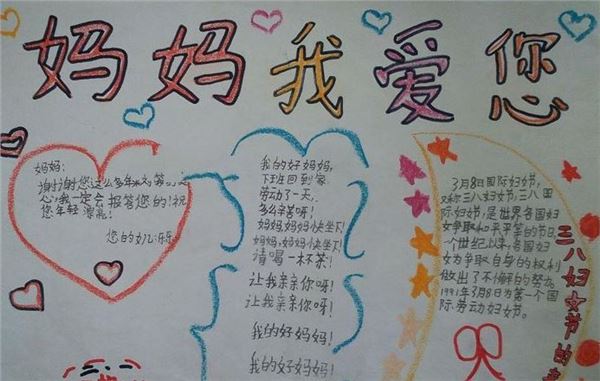 妈妈我爱您
妈妈:
谢谢您这么多年来对我的关
心!我一定会报答您的!祝
您年轻漂亮!
您的女儿:乐乐
我的好妈妈,
下班回到家,
劳动了一天,
多么辛苦呀!
妈妈妈妈快坐下!
妈妈,妈妈快坐下!
请喝一杯茶!
让我亲亲你呀!
让我亲亲你呀!
我的好妈妈!
我的好妈妈!
3月8日国际妇女节,
又称三八妇女节,三八国
际妇女节,是世界各国妇
女争取和平平等的节日,
一个世纪以来,各国妇
女为争取自身的权利
做出了不懈的努力
1991年3月8日为第一个国
际劳动妇女节。
三八妇女节的